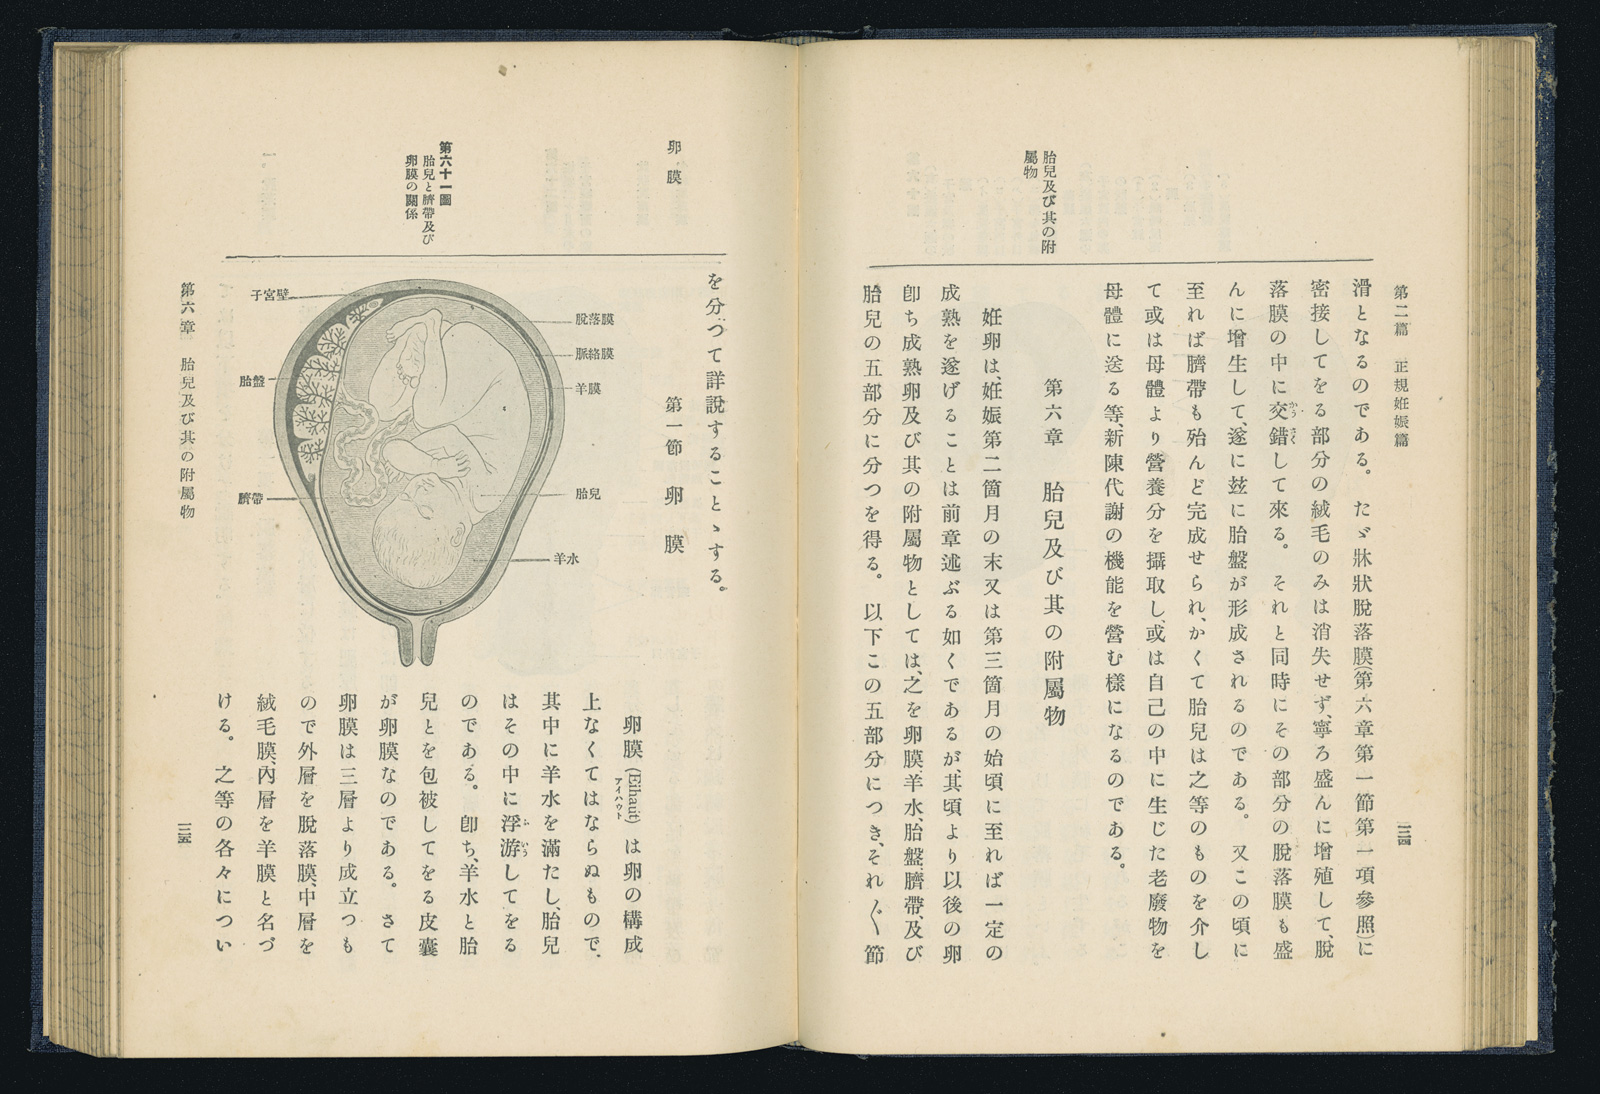 第二篇 正規姙娠篇
一三四
胎兒及び其の附
屬物
滑となるのである。 たゞ牀狀脫落膜(第六章第一節第一項參照)に
密接してをる部分の絨毛のみは消失せず、寧ろ盛んに增殖して、脫
落膜の中に交錯して來る。 それと同時にその部分の脫落膜も盛
かうさく
んに增生して、遂に玆に胎盤が形成されるのである。 又この頃に
至れば臍帶も殆んど完成せられ、かくて胎兒は之等のものを介し
て或は母體より營養分を攝取し、或は自己の中に生じた老廢物を
母體に送る等、新陳代謝の機能を營む樣になるのである。
第六章 胎兒及び其の附屬物
姙卵は、姙娠第二箇月の末又は第三箇月の始頃に至れば一定の
成熟を遂げることは前章述ぶる如くであるが、其頃より以後の卵
卽ち成熟卵及び其の附屬物としては、之を卵膜、羊水、胎盤、臍帶、及び
胎兒の五部分に分つを得る。 以下この五部分につき、それ〴〵節
卵膜
を分つて詳說することゝする。
第一節 卵膜
第六十一圖
胎兒と臍帶及び
卵膜の關係
子宮壁
胎盤
臍帶
脫落膜
脈絡膜
羊膜
胎兒
羊水
卵膜(Eihaut)は卵の構成
アイハウト
上なくてはならぬもので、
其中に羊水を滿たし、胎兒
はその中に浮游してをる
ふいう
のである。 卽ち、羊水と胎
兒とを包被してをる皮囊
が卵膜なのである。 さて
卵膜は三層より成立つも
ので外層を脫落膜、中層を
絨毛膜、內層を羊膜と名づ
ける。 之等の各々につい
第六章 胎兒及び其の附屬物
一三五